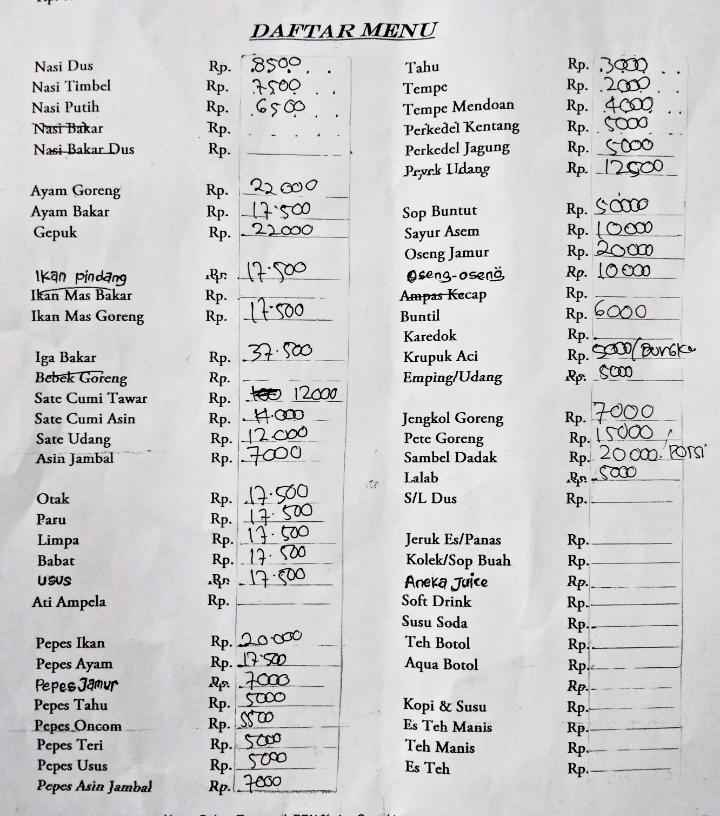 DAFTAR MENU
Nasi Dus Rp. 8500
Nasi Timbel Rp. 7500
Nasi Putih Rp. 6500
Nasi Bakar Rp.
Nasi Bakar Dus Rp.
Ayam Goreng Rp. 22000
Ayam Bakar Rp. 17.500
Gepuk Rp. 22000
Ikan pindang Rp. 17.500
Ikan Mas Bakar Rp.
Ikan Mas Goreng Rp. 17.500
Iga Bakar Rp. 37.500
Bebek Goreng Rp.
Sate Cumi Tawar Rp. 12000
Sate Cumi Asin Rp. 11.000
Sate Udang Rp. 12.000
Asin Jambal Rp. 7000
Otak Rp. 17.500
Paru Rp. 17.500
Limpa Rp. 17.500
Babat Rp. 17.500
usus Rp. 17.500
Ati Ampela Rp.
Pepes Ikan Rp. 20.000
Pepes Ayam Rp. 17.500
Pepes Jamur Rp. 7000
Pepes Tahu Rp. 5000
Pepes Oncom Rp. 5500
Pepes Teri Rp. 5000
Pepes Usus Rp. 5000
Pepes Asin Jambal Rp. 7000
Tahu Rp. 3000
Tempe Rp. 2000
Tempe Mendoan Rp. 4000
Perkedel Kentang Rp. 5000
Perkedel Jagung Rp. 5000
Udang Rp. 12500
Sop Buntut Rp. 50000
Sayur Asem Rp. 10000
Oseng Jamur Rp. 20000
Oseng-oseng Rp. 10000
Ampas Kecap Rp.
Buntil Rp. 6000
Karedok Rp.
Krupuk Aci Rp. 5000/Bungks
Emping/Udang Rp. 5000
Jengkol Goreng Rp. 7000
Pete Goreng Rp. 15000 /
Sambel Dadak Rp. 20000. Porsi
Lalab Rp. 5000
S/L Dus Rp.
Jeruk Es/Panas Rp.
Kolek/Sop Buah Rp.
Aneka Juice Rp.
Soft Drink Rp.
Susu Soda Rp.
Teh Botol Rp.
Aqua Botol Rp.
Rp.
Kopi & Susu Rp.
Es Teh Manis Rp.
Teh Manis Rp.
Es Teh Rp.